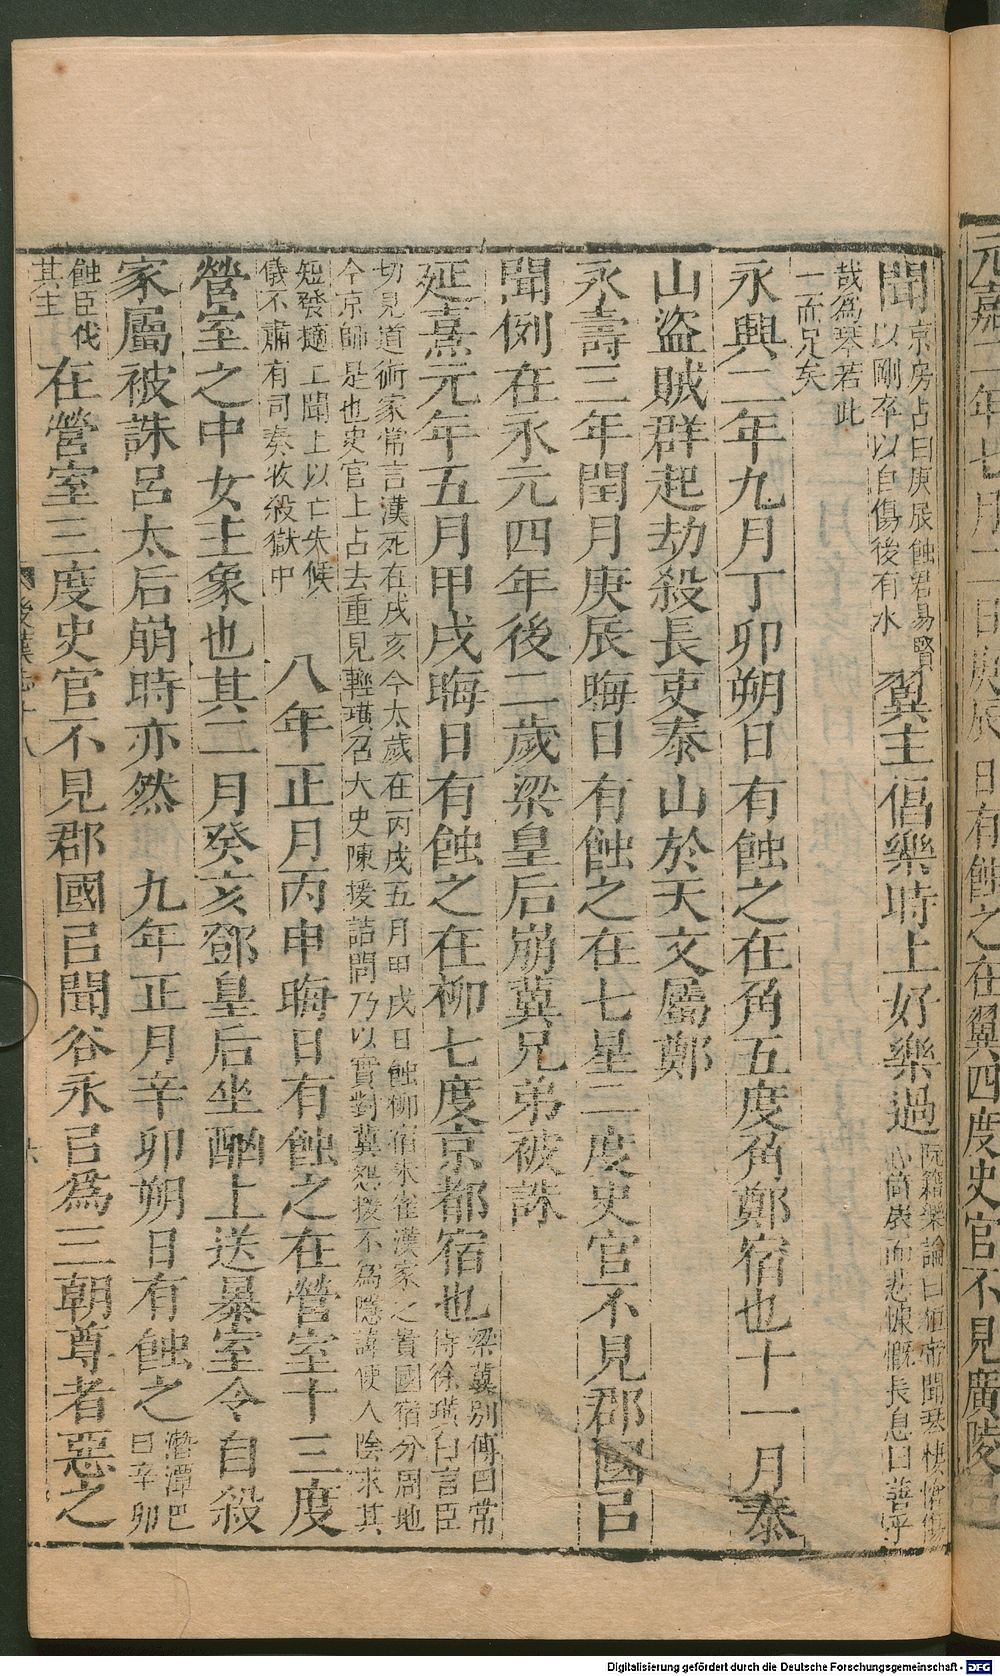 元嘉二年七月二日庚辰日有蝕之在翼四度史官不見廣陵㠯
聞京房占曰庚辰蝕君易賢以剛卒以自傷後有水翼主倡樂時上好樂過阮籍樂論曰桓帝聞琴悽愴傷心倚扆而悲慷慨長息曰善乎
哉為琴若此一而足矣
永興二年九月丁卯朔日有蝕之在角五度角鄭宿也十一月泰
山盜賊群起劫殺長吏泰山於天文屬鄭
永壽三年閏月庚辰晦日有蝕之在七星二度史官不見郡國㠯
聞例在永元四年後二歲梁皇后崩冀兄弟被誅
延熹元年五月甲戌晦日有蝕之在柳七度京都宿也梁冀別傳曰常侍徐璜白言臣
切見道術家常言漢死在戌亥今太歲在丙戌五月甲戌日蝕柳宿朱雀漢家之貴國宿分周地今京師是也史官上占去重見輕璜召大史陳援詰問乃以實對冀怨援不為隱諱使人陰求其
短發擿上聞上以亡失候儀不肅有司奏收殺獄中八年正月丙申晦日有蝕之在營室十三度
營室之中女主象也其二月癸亥鄧皇后坐酗上送暴室令自殺
家屬被誅呂太后崩時亦然九年正月辛卯朔日有蝕之潛潭巴曰辛卯
蝕臣伐其主在營室三度史官不見郡國㠯聞谷永㠯為三朝尊者惡之
後漢志十八
六
Digitalisierung gefördert durch die Deutsche Forschungsgemeinschaft - DFG